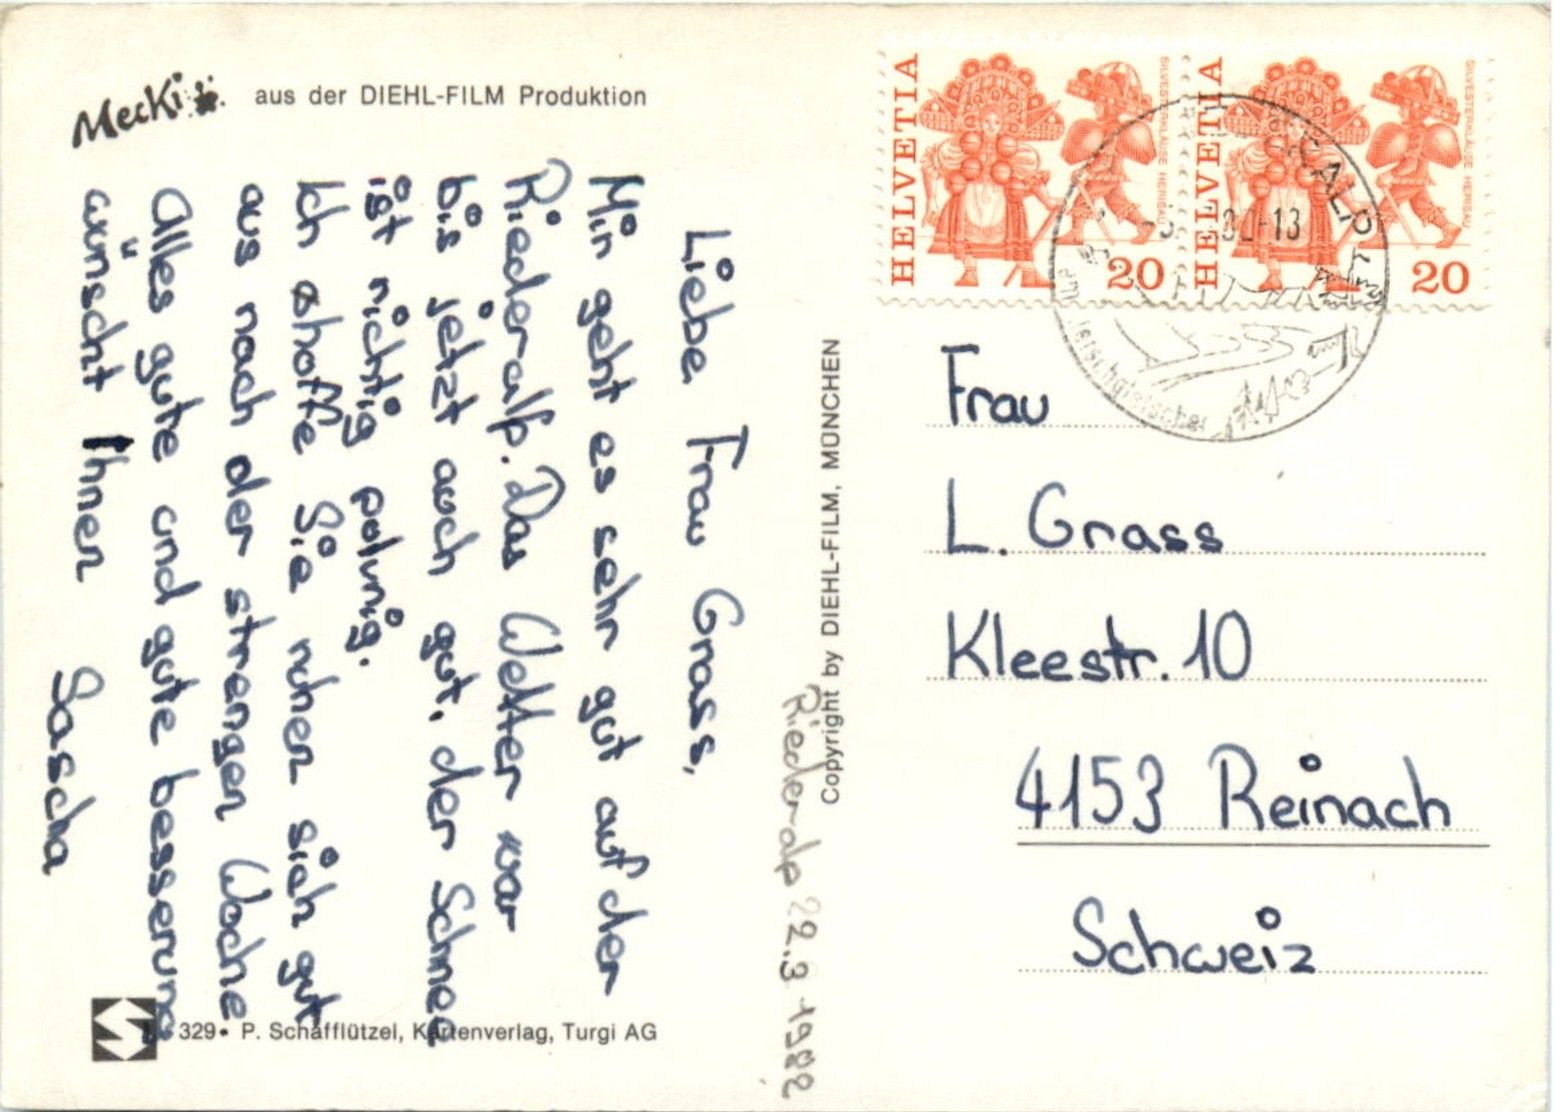 Mecki aus der DIEHL-FILM Produktion
Liebe Frau Grass,
Mir geht es sehr gut auf der
Riederalp. Das Wetter war
bis jetzt auch gut, der Schnee
ist richtig pulvrig.
Ich ohoffe Sie ruhen sich gut
aus nach der strengen Woche
Alles gute und gute besserung
wünscht Ihnen
Sascha
329 • P. Schafflützel, Kartenverlag, Turgi AG
Copyright by DIEHL-FILM, MÜNCHEN
Riederalp 22.3 1982
HELVETIA
SILVESTERKLÄUSE HERISAU
20
HELVETIA
SILVESTERKLÄUSE HERISAU
20
Frau
L. Grass
Kleestr. 10
4153 Reinach
Schweiz